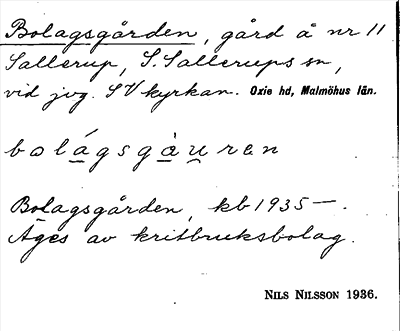 Bolagsgården, gård å nr 11
Sallerup, S. Sallerups sn,
vid jvg. SV kyrkan. Oxie hd, Malmöhus län.
bolágsgàu̯ren
Bolagsgården, kb 1935 —.
Äges av kritbruksbolag.
NILS NILSSON 1936.